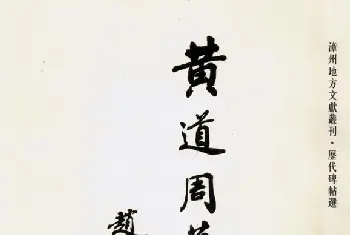 漳州地方文獻叢刊·歷代碑帖選
黄道周
趙